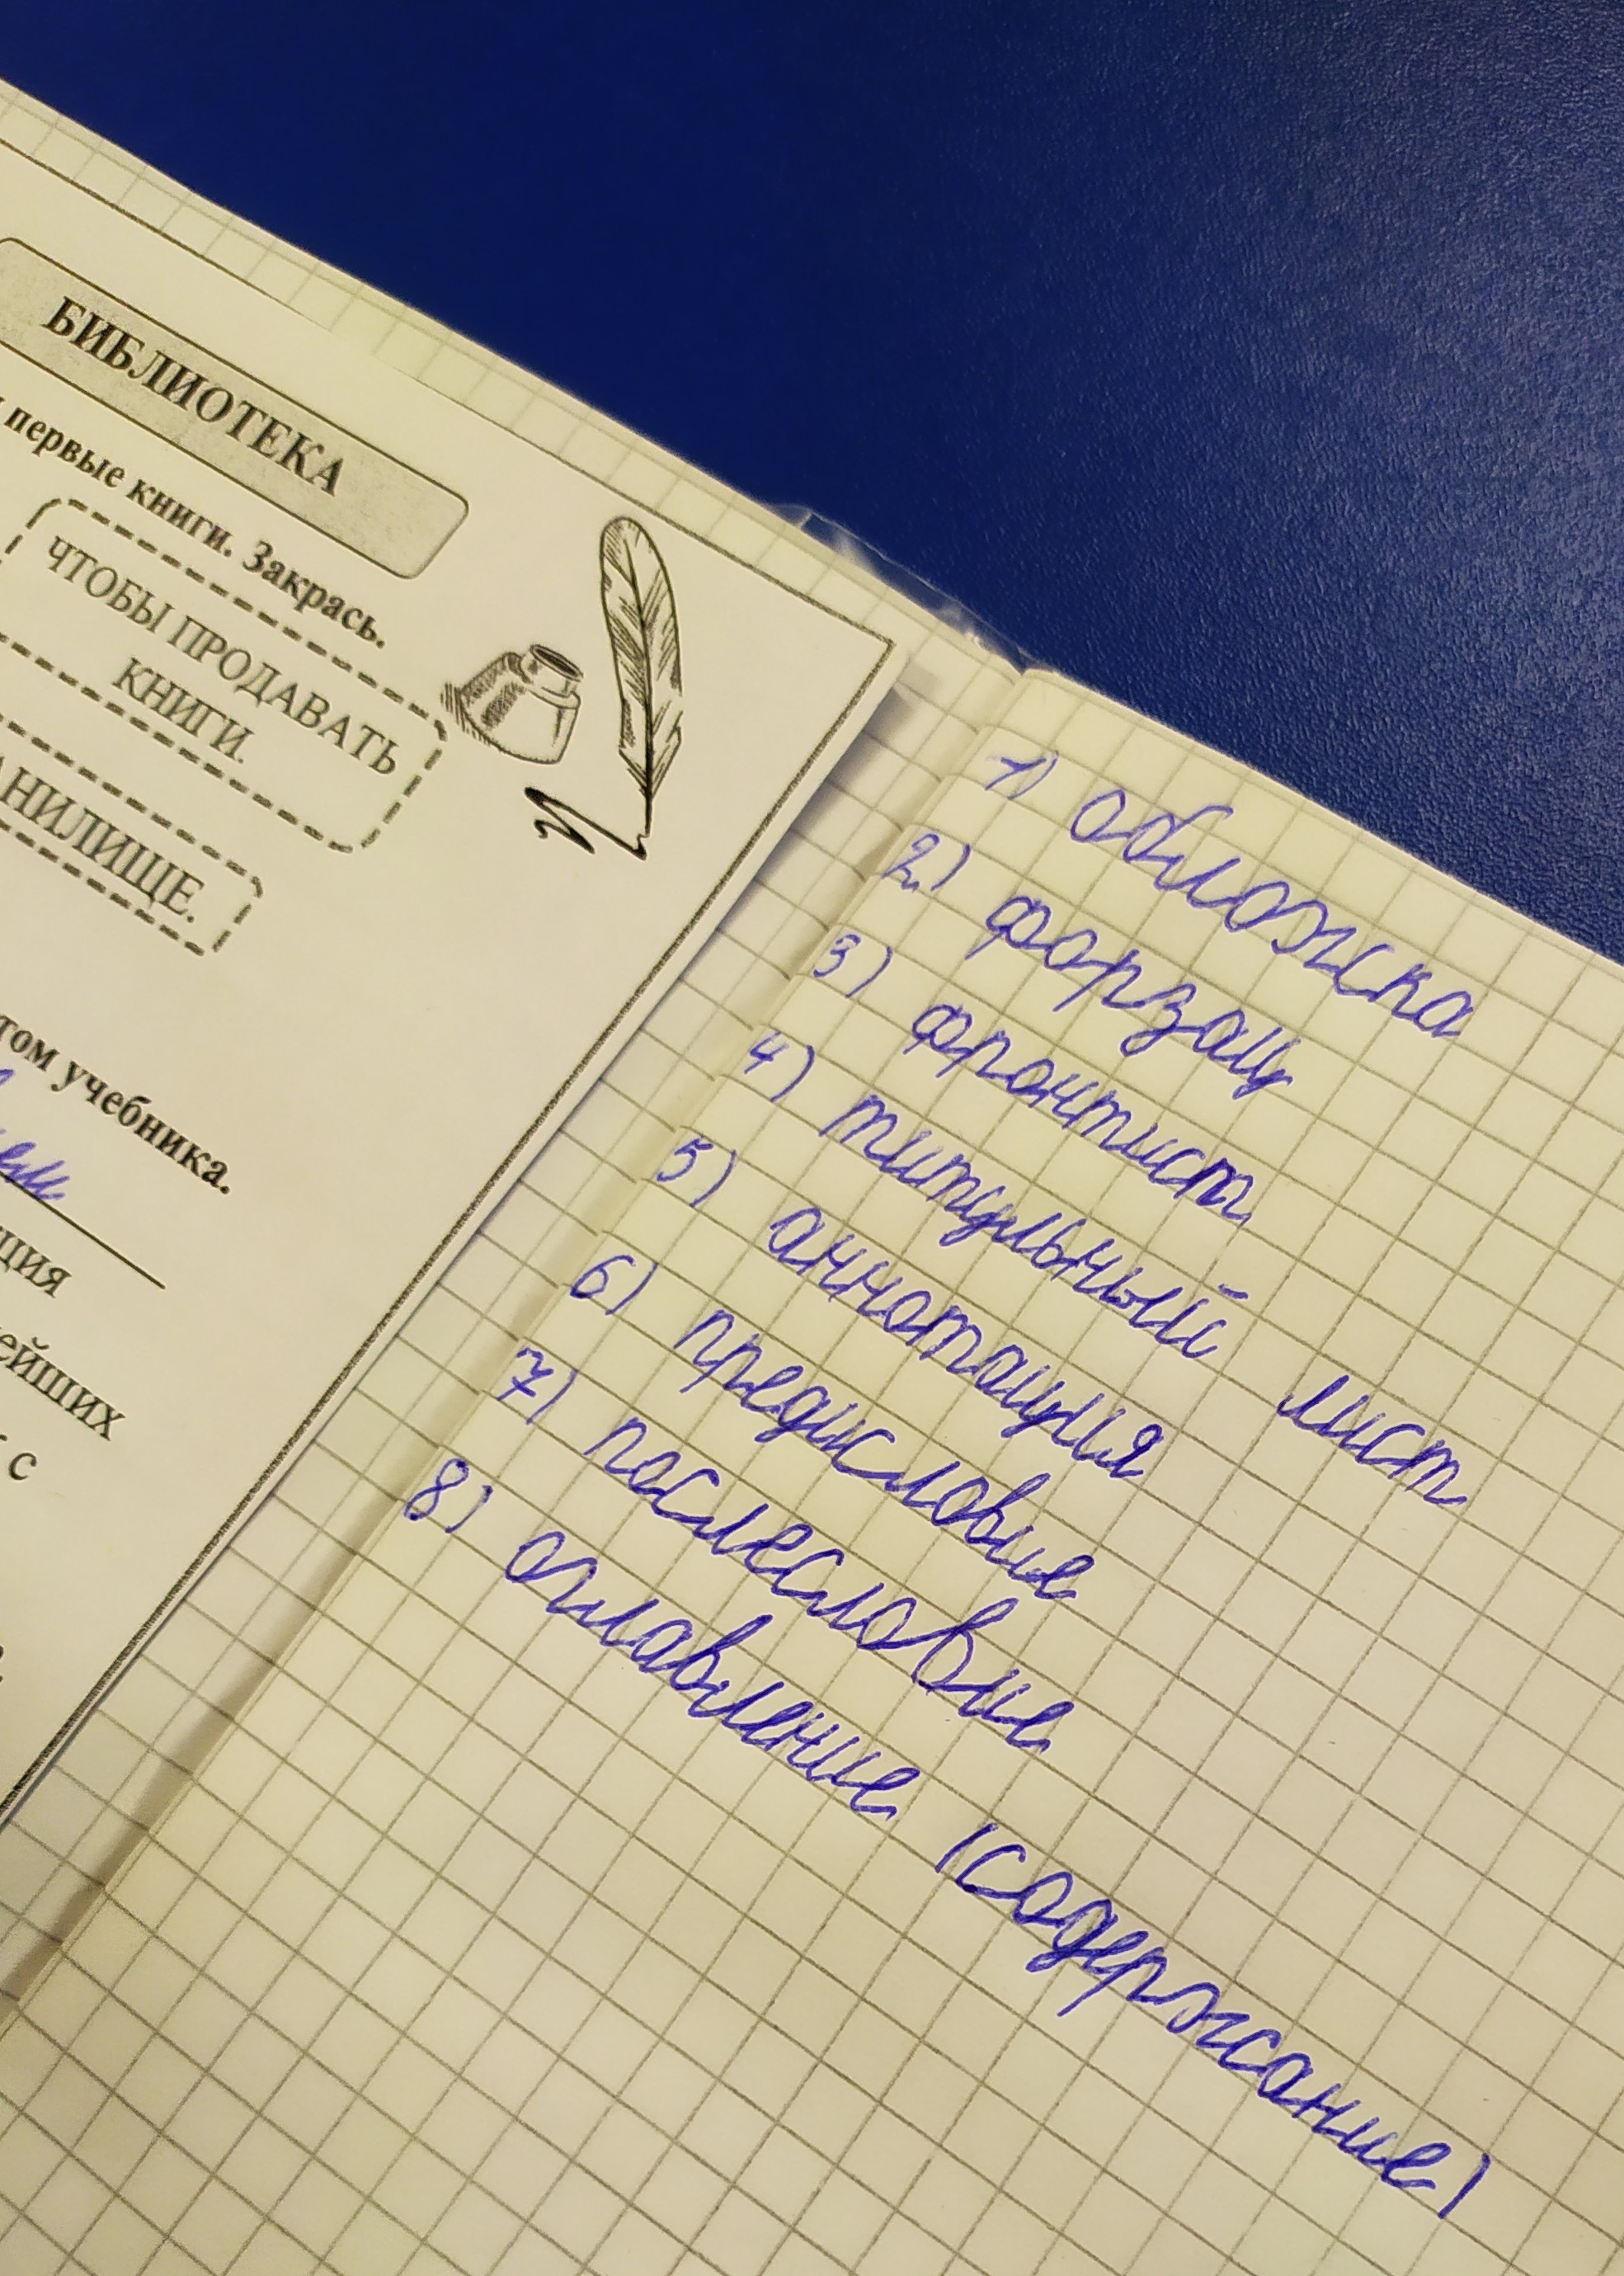 БИБЛИОТЕКА
первые книги. Закрась.
ЧТОБЫ ПРОДАВАТЬ
КНИГИ.
АНИЛИЩЕ.
том учебника.
ция
ейших
с
1) обложка
2) форзац
3) фронтист
4) титульный лист
5) аннотация
6) предисловие
7) послесловие
8) оглавление (содержание)